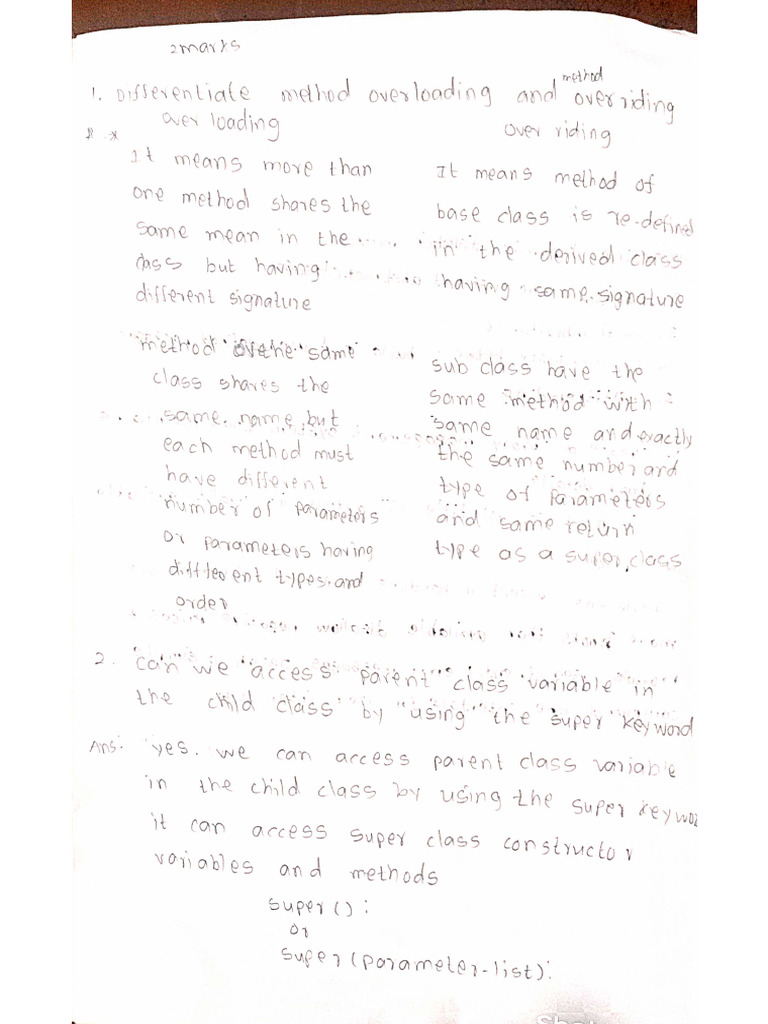 2marks
1. Differentiate method overloading and method overriding
over loading
over riding
* It means more than
one method shares the
same mean in the
class but having
different signature
It means method of
base class is re-defined
in the derived class
having same signature
method the same
class shares the
same name but
each method must
have different
number of parameters
or parameters having
diffferent types and
order
sub class have the
same method with
same name and exactly
the same number and
type of parameters
and same return
type as a super class
2. can we access parent class variable in
the child class by using the super keyword
Ans: yes. we can access parent class variable
in the child class by using the super keywor
it can access super class constructor
variables and methods
super():
or
super(parameter-list):